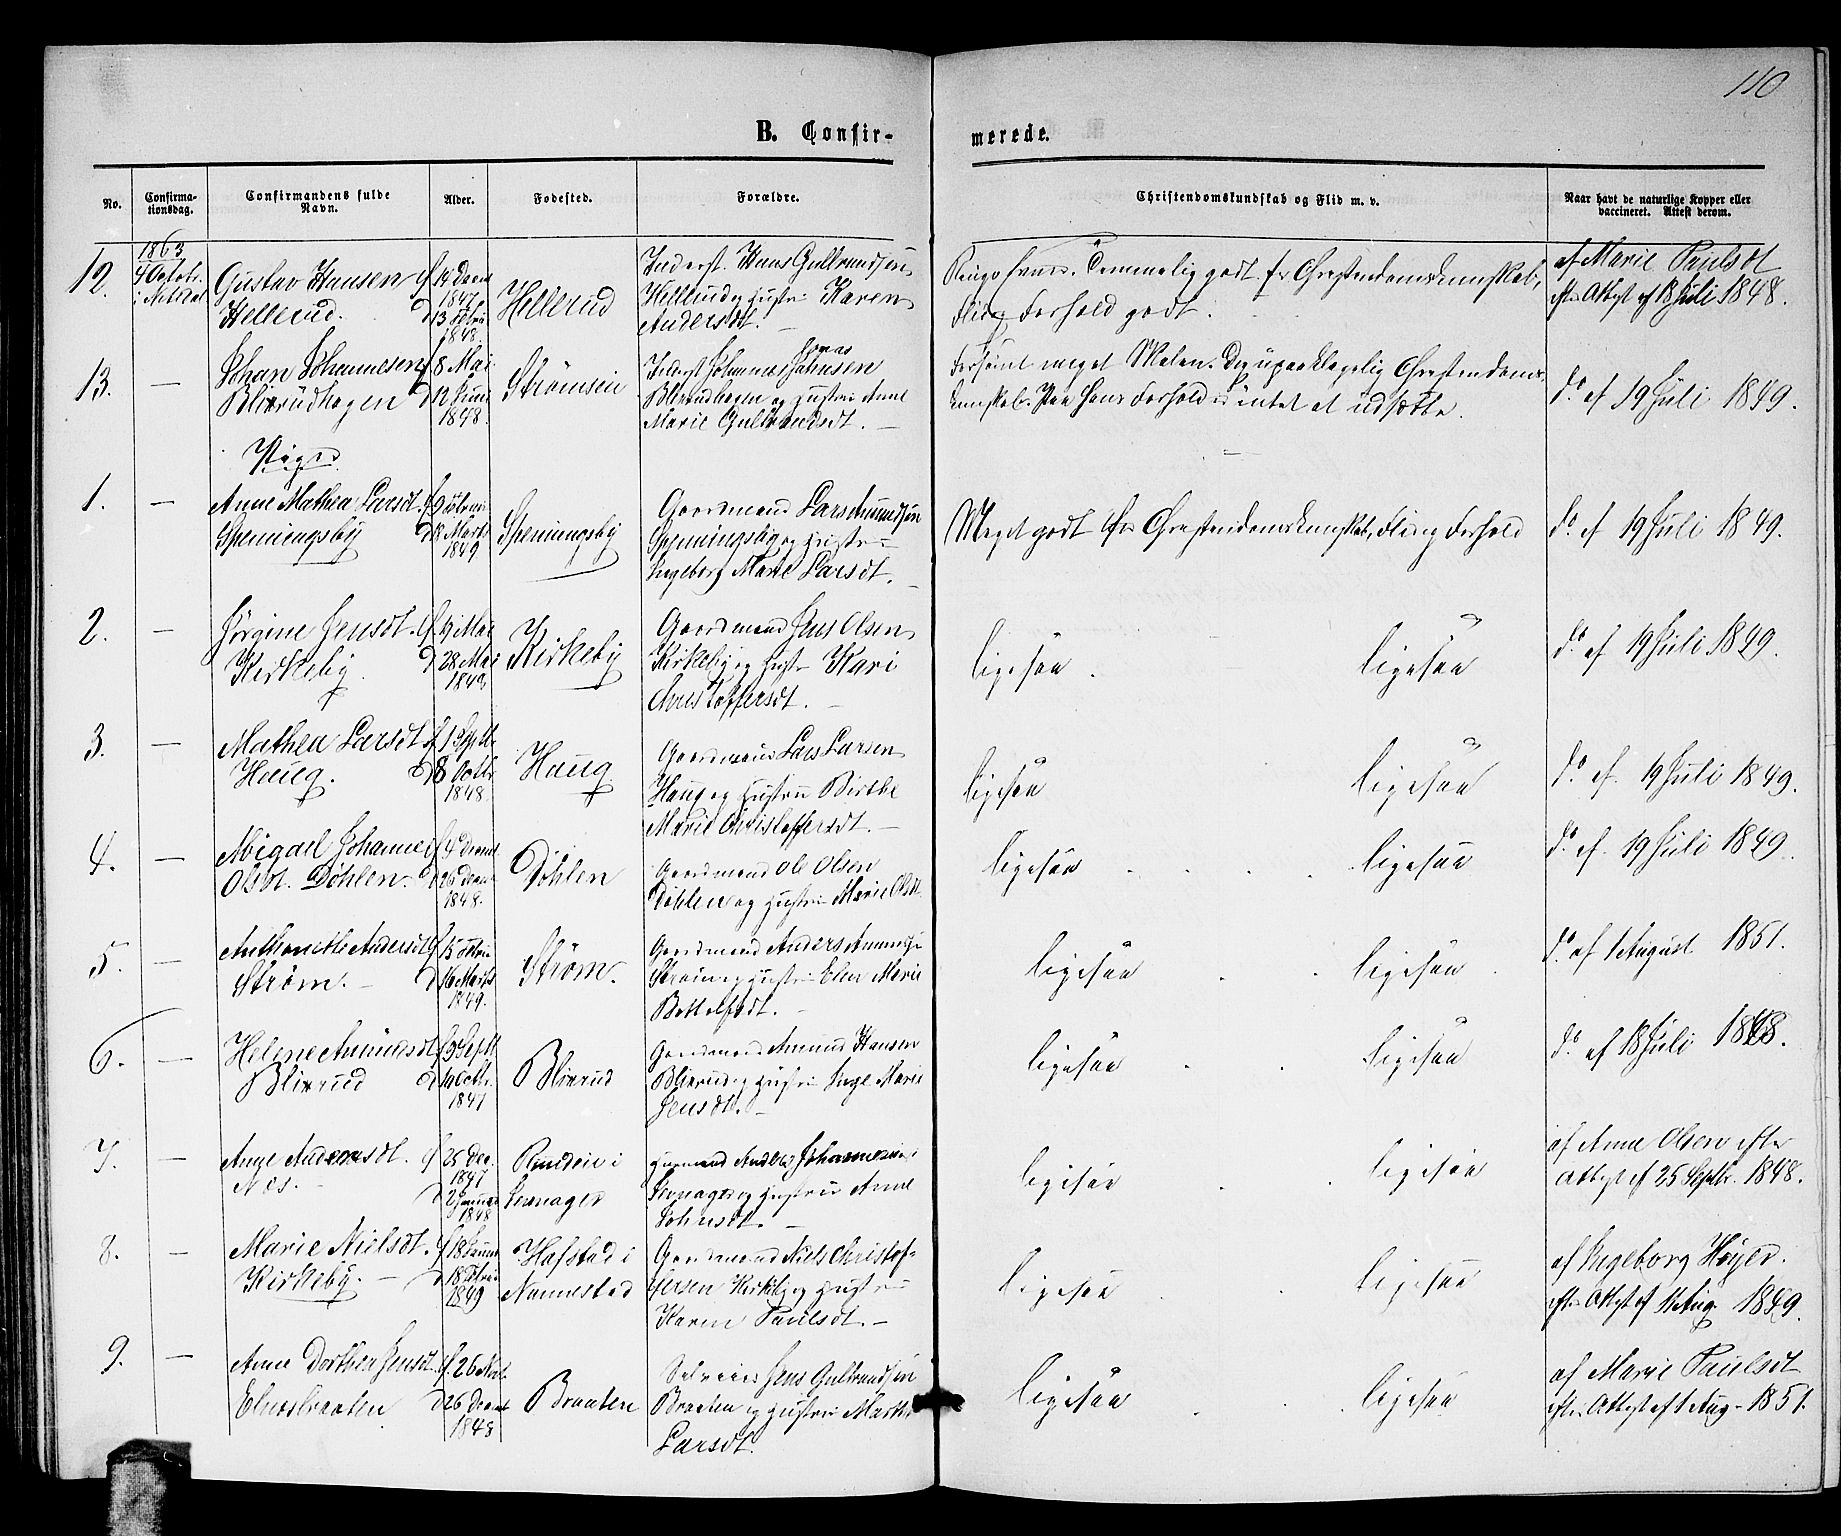 110
B. Confir-
merede.
No.
Confirma-
tionsdag.
Confirmandens fulde
Navn.
Alder.
Fødested.
Forældre.
Christendomskundskab og Flid m. v.
Naar havt de naturlige Kopper eller
vaccineret. Attest derom.
1863
12.
4 Octob.
Gustav Hansen
Hellerud.
f 14 Decem
1847
d 13 Febru
1848.
Hellerud
Inderst. Hans Gulbrandsen
Hellerud og Hustru Karen
Andersdt.
Temmelig godt for Christendomskundskab,
Flid og Forhold godt.
af Marie Paulsdt
efter Attest af 18 Juli 1848.
13.
—
Johan Johannesen
Blixrudhagen
f 8 Mai
d 12 Juni
1848.
Strømseie
Inderst Johannes Johnsen
Blixrudhagen og Hustru Anne
Marie Gulbrandsdt. —
Forsømt meget Skolen.
Christendoms-
kundskab. Paa hans Forhold er intet at udsætte.
do af 19 Juli 1849.
Piger
1.
—
Anne Mathea Larsdt.
Spenningsby
f 9 Febru
Marts
1849
Spenningsby
Gaardmand Lars Amundsen
Spenningsby og Hustru
Ingeborg Marie Larsdt. —
Meget godt for Christendomskundskab, Flid og Forhold
do af 19 Juli 1849.
2.
—
Jørgine Jensdt.
Kirkeby
f 9 Mai
d 28 Mai
1848
Kirkeby
Gaardmand Jens Olsen
Kirkeby og Hustru Kari
Christoffersdt. —
ligesaa.
ligesaa
do af 19 Juli 1849.
3.
—
Mathea Larsdt
Haug.
f 1 Septb
d 8 Octbr
1848.
Haug
Gaardmand Lars Larsen
Haug og Hustru Birthe
Marie Christoffersdt. —
ligesaa
ligesaa
do af 19 Juli 1849.
4.
—
Abigael Johanne
Olsdt. Döhlen.
f 4 Decemb
d 26 Decem
1848.
Döhlen
Gaardmand Ole Olsen
Döhlen og Hustru Marie Olsdt.
ligesaa
ligesaa
do af 19 Juli 1849
5.
—
Anthonette Andersdt
Strøm. —
f 15 Febru
d 16 Marts
1849.
Strøm.
Gaardmand Anders Amunds.
Strøm og Hustru Elen Marie
Bottolfsdt. —
ligesaa
ligesaa
do af 1 August 1851.
6.
—
Helene Amundsdt
Blixrud
f 3 Septb
d 10 Octbr.
1847
Blixrud
Gaardmand Amund Hansen
Blixrud og Hustru Inge Marie
Jensdt. —
ligesaa
ligesaa
do af 18 Juli 1848.
7.
—
Andersdt.
Næs. —
f 25 Dec.
1847
d 2 Januar
1848
i
Husmand Anders Johannesen i
og Hustru Anne
Johnsdt. —
ligesaa
ligesaa
af Anne Olsen efter
Attest af 25 Septbr. 1848.
8.
—
Marie Nielsdt.
Kirkeby. —
f 18 Januar
d 18 Febru
1849
Hafstad i
Nannestad
Gaardmand Niels Christof-
fersen Kirkeby og Hustru
Karen Paulsdt. —
ligesaa
ligesaa
af Ingeborg Høyer.
efter Attest af 1 Aug. 1849.
9.
—
Anne Dorthea Jensdt.
Elnesbraaten
f. 26 Nov.
d 26 Decem
1848
Braaten
Selveier Jens Gulbrandsen
Braaten og Hustru Marthe
Larsdt.
ligesaa
ligesaa
af Marie Paulsdt
efter Attest af 1 Aug. 1851.